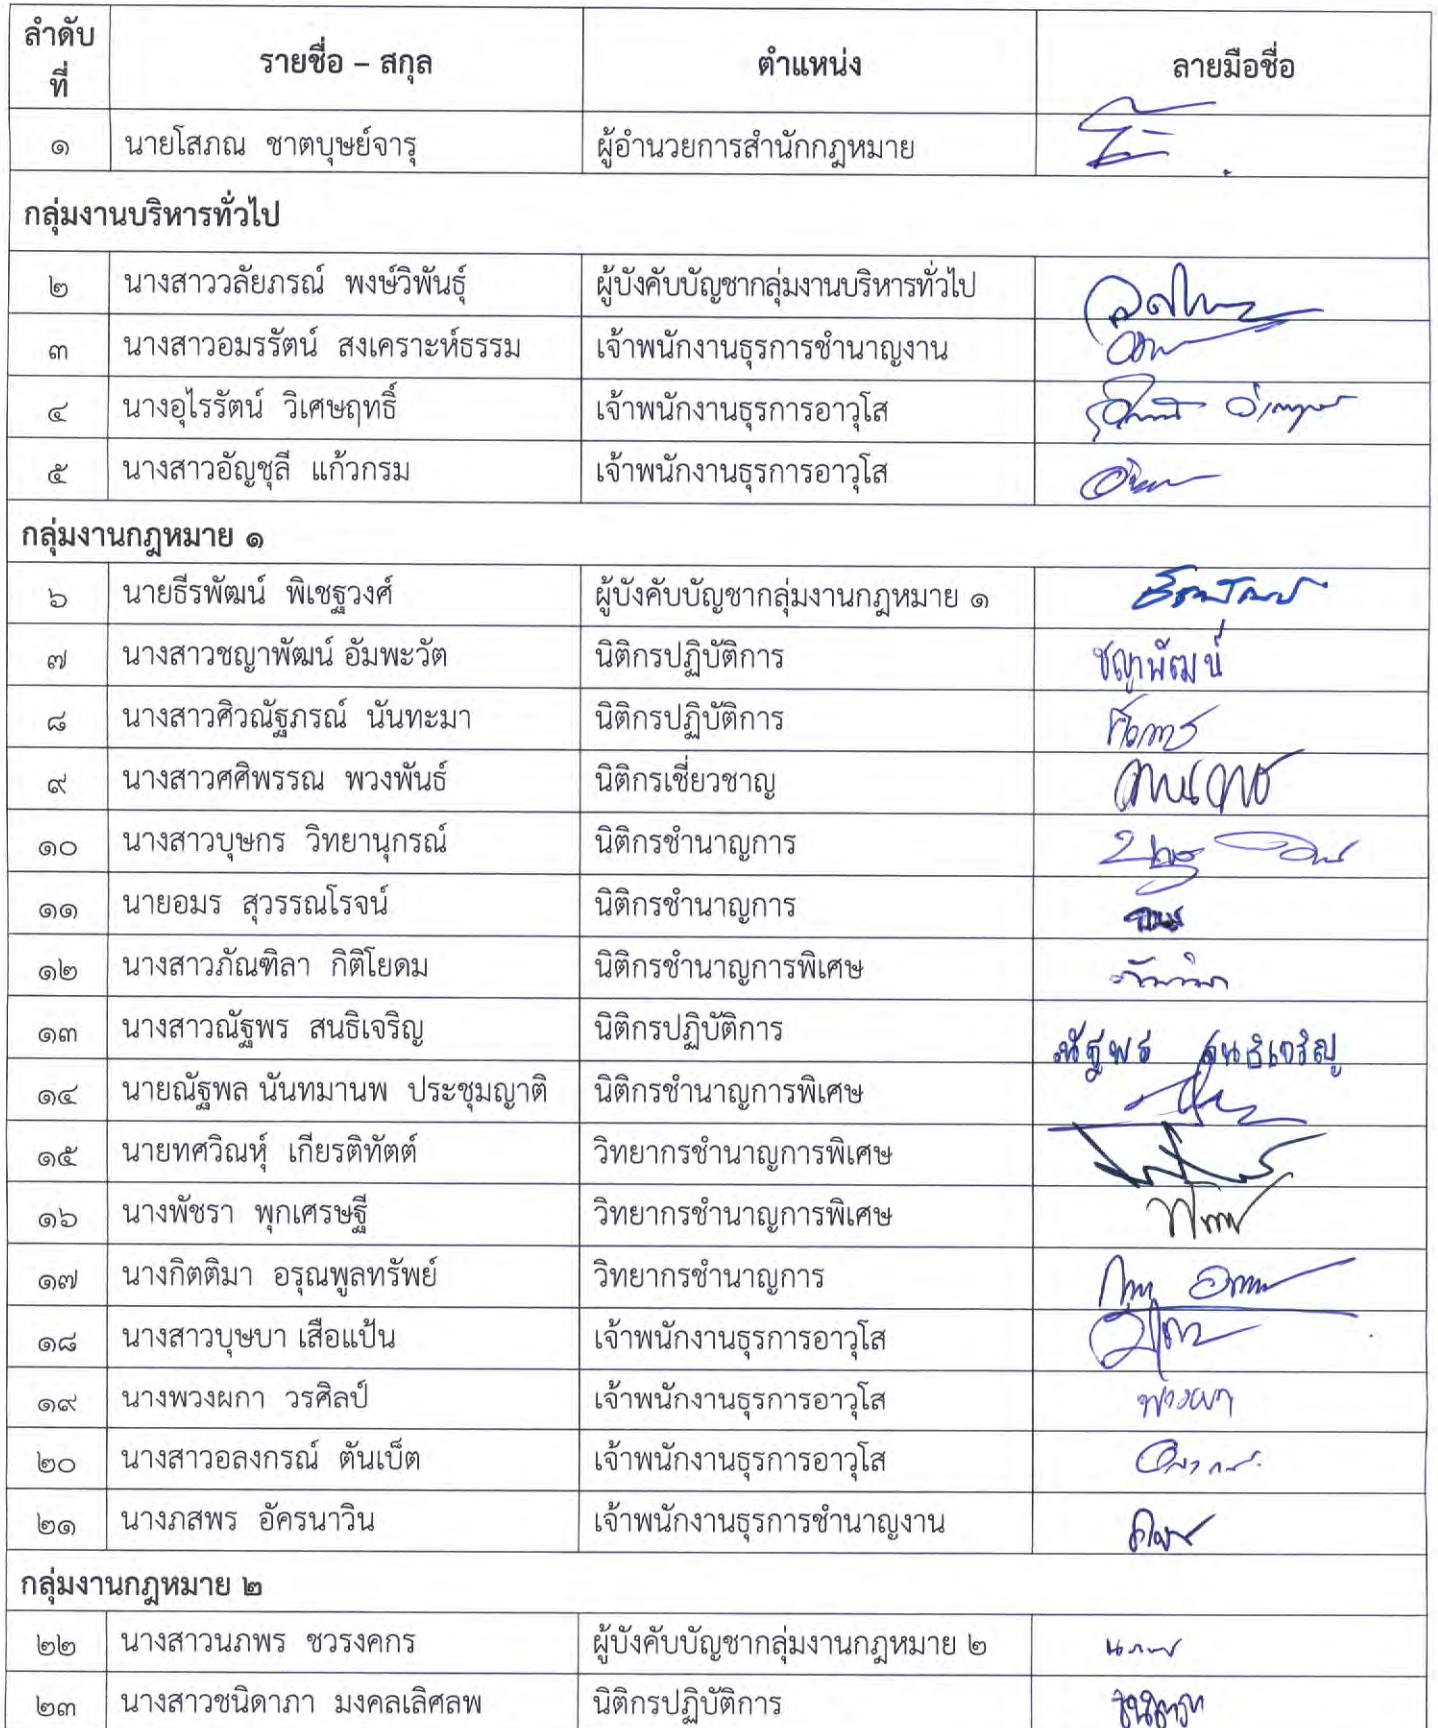 ลำดับที่ รายชื่อ – สกุล ตำแหน่ง ลายมือชื่อ
๑ นายโสภณ ชาตบุษย์จารุ ผู้อำนวยการสำนักกฎหมาย
กลุ่มงานบริหารทั่วไป
๒ นางสาววลัยภรณ์ พงษ์วิพันธุ์ ผู้บังคับบัญชากลุ่มงานบริหารทั่วไป
๓ นางสาวอมรรัตน์ สงเคราะห์ธรรม เจ้าพนักงานธุรการชำนาญงาน
๔ นางอุไรรัตน์ วิเศษฤทธิ์ เจ้าพนักงานธุรการอาวุโส
๕ นางสาวอัญชุลี แก้วกรม เจ้าพนักงานธุรการอาวุโส
กลุ่มงานกฎหมาย ๑
๖ นายธีรพัฒน์ พิเชฐวงศ์ ผู้บังคับบัญชากลุ่มงานกฎหมาย ๑ ธีรพัฒน์
๗ นางสาวชญาพัฒน์ อัมพะวัต นิติกรปฏิบัติการ ชญาพัฒน์
๘ นางสาวศิวณัฐภรณ์ นันทะมา นิติกรปฏิบัติการ
๙ นางสาวศศิพรรณ พวงพันธ์ นิติกรเชี่ยวชาญ
๑๐ นางสาวบุษกร วิทยานุกรณ์ นิติกรชำนาญการ
๑๑ นายอมร สุวรรณโรจน์ นิติกรชำนาญการ
๑๒ นางสาวภัณฑิลา กิติโยดม นิติกรชำนาญการพิเศษ
๑๓ นางสาวณัฐพร สนธิเจริญ นิติกรปฏิบัติการ ณัฐพร สนธิเจริญ
๑๔ นายณัฐพล นันทมานพ ประชุมญาติ นิติกรชำนาญการพิเศษ
๑๕ นายทศวิณหุ์ เกียรติทัตต์ วิทยากรชำนาญการพิเศษ
๑๖ นางพัชรา พุกเศรษฐี วิทยากรชำนาญการพิเศษ
๑๗ นางกิตติมา อรุณพูลทรัพย์ วิทยากรชำนาญการ
๑๘ นางสาวบุษบา เสือแป้น เจ้าพนักงานธุรการอาวุโส
๑๙ นางพวงผกา วรศิลป์ เจ้าพนักงานธุรการอาวุโส พวงผกา
๒๐ นางสาวอลงกรณ์ ตันเบ็ต เจ้าพนักงานธุรการอาวุโส
๒๑ นางภสพร อัครนาวิน เจ้าพนักงานธุรการชำนาญงาน
กลุ่มงานกฎหมาย ๒
๒๒ นางสาวนภพร ชวรงคกร ผู้บังคับบัญชากลุ่มงานกฎหมาย ๒
๒๓ นางสาวชนิดาภา มงคลเลิศลพ นิติกรปฏิบัติการ